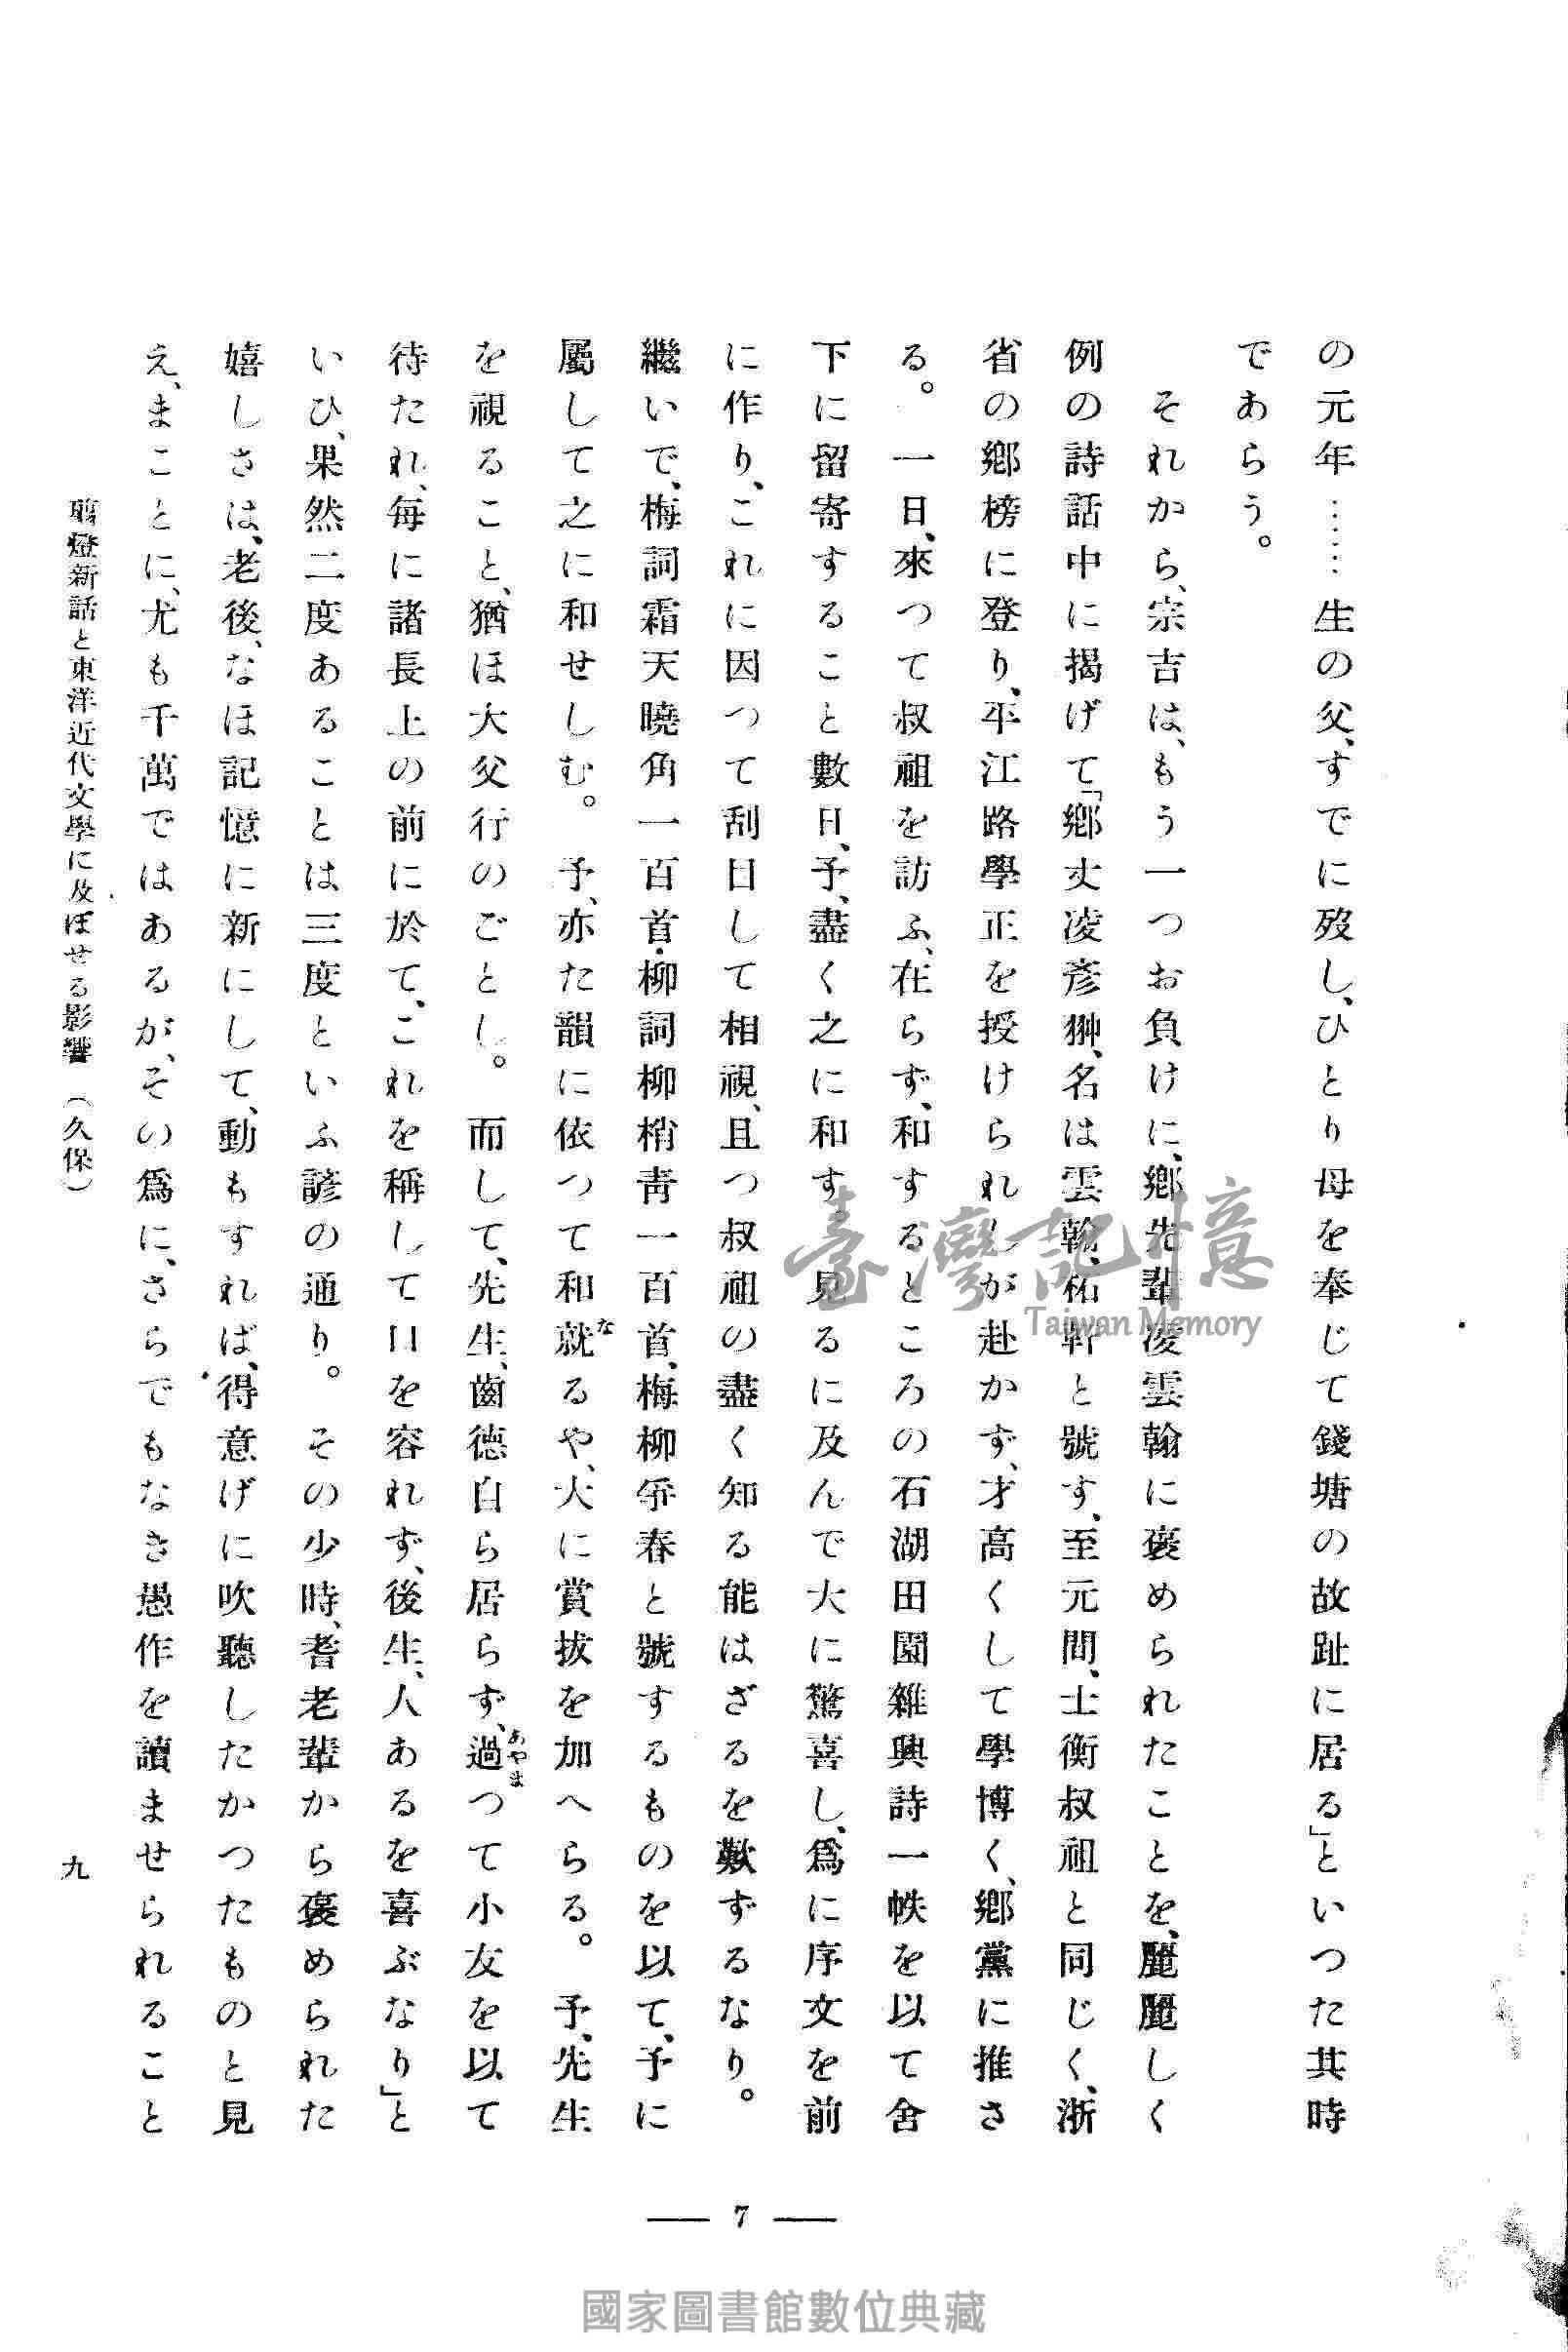 の元年……生の父、すでに歿し、ひとり母を奉じて錢塘の故趾に居る」といつた其時
であらう。
それから、宗吉は、もう一つお負けに、鄕先輩凌雲翰に褒められたことを、麗麗しく
例の詩話中に揭げて「鄕丈凌彥翀、名は雲翰、柘軒と號す、至元間、士衡叔祖と同じく、浙
省の鄕榜に登り、平江路學正を授けられしが赴かず、才高くして學博く、鄕黨に推さ
る。一日、來つて叔祖を訪ふ、在らず、和するところの石湖田園雜興詩一帙を以て舍
下に留寄すること數日、予、盡く之に和す、見るに及んで大に驚喜し、爲に序文を前
に作り、これに因つて刮目して相視、且つ叔祖の盡く知る能はざるを歎ずるなり。
繼いで、梅詞霜天曉角一百首・柳詞柳梢靑一百首、梅柳爭春と號するものを以て、予に
屬して之に和せしむ。予、亦た韻に依つて和就なるや、大に賞拔を加へらる。予、先生
を視ること、猶ほ大父行のごとし。而して、先生、齒德自ら居らず、過あやまつて小友を以て
待たれ、每に諸長上の前に於て、これを稱して口を容れず、後生、人あるを喜ぶなり」と
いひ、果然二度あることは三度といふ諺の通り。その少時、耆老輩から褒められた
嬉しさは、老後、なほ記憶に新にして、動もすれば、得意げに吹聽したかつたものと見
え、まことに、尤も千萬ではあるが、その爲に、さらでもなき愚作を讀ませられること
剪燈新話と東洋近代文學に及ぼせる影響（久保）
九
— 7 —
臺灣記憶
Taiwan Memory
國家圖書館數位典藏